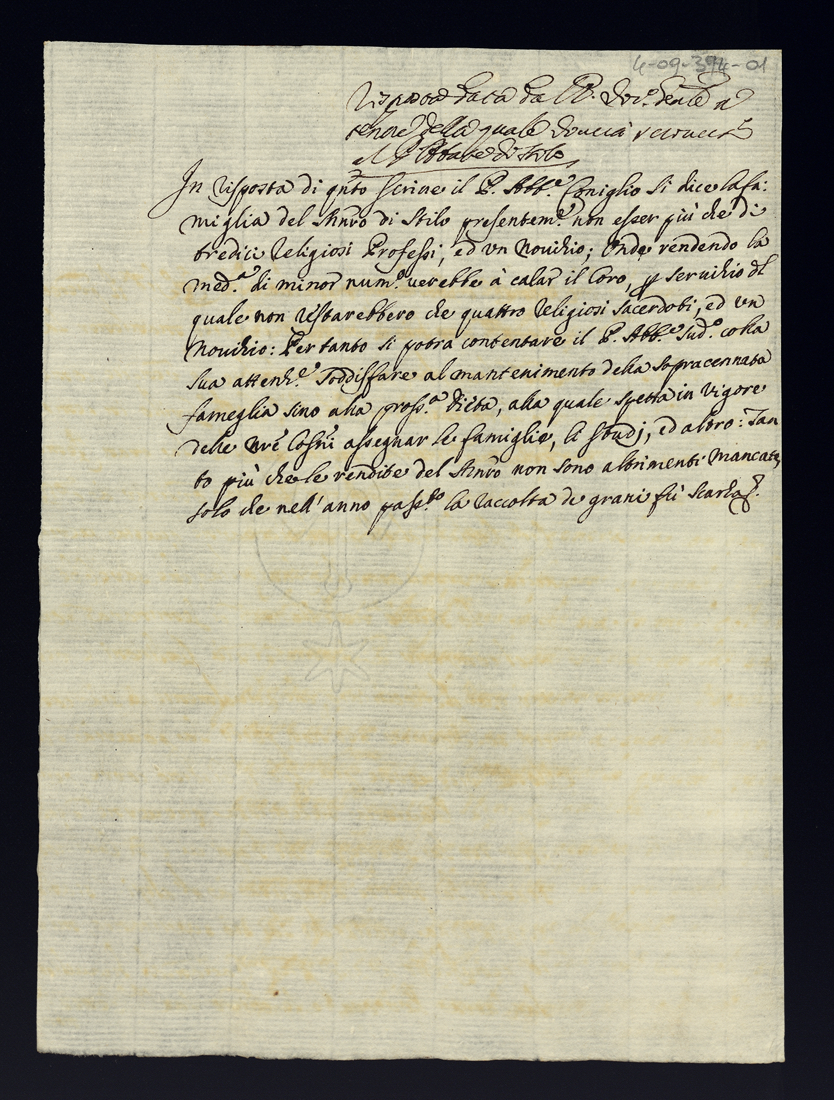 4-09-394-01
Risposta data da P. Gen͞le a
tenore della quale dovrà
al P. Abbate di Stilo
In risposta di qn͞to scrive il P. Abb.e Coniglio si dice la fa:
miglia del Mnr͞o di Stilo presentem.e non esser più che di
tredici Religiosi Professi, ed un Novizio; Onde rendendo la
med.a di minor num.o verebbe à calar il Coro, servizio del
quale non restarebbero che quattro Religiosi Sacerdoti, ed un
Novizio: Pertanto si potrà contentare il P. Abb.e sud.o colla
sua attenz.e soddisfare al mantenimento della sopracennata
fameglia sino alla pross.a Dieta, alla quale spetta in vigore
delle nr͞e Cost͞ni assegnar le famiglie, li studj, ed altro: Tan
to più che le rendite del Mnr͞o non sono altrimenti mancate,
solo che nell'anno pass.to la raccolta de grani fù scarsa.